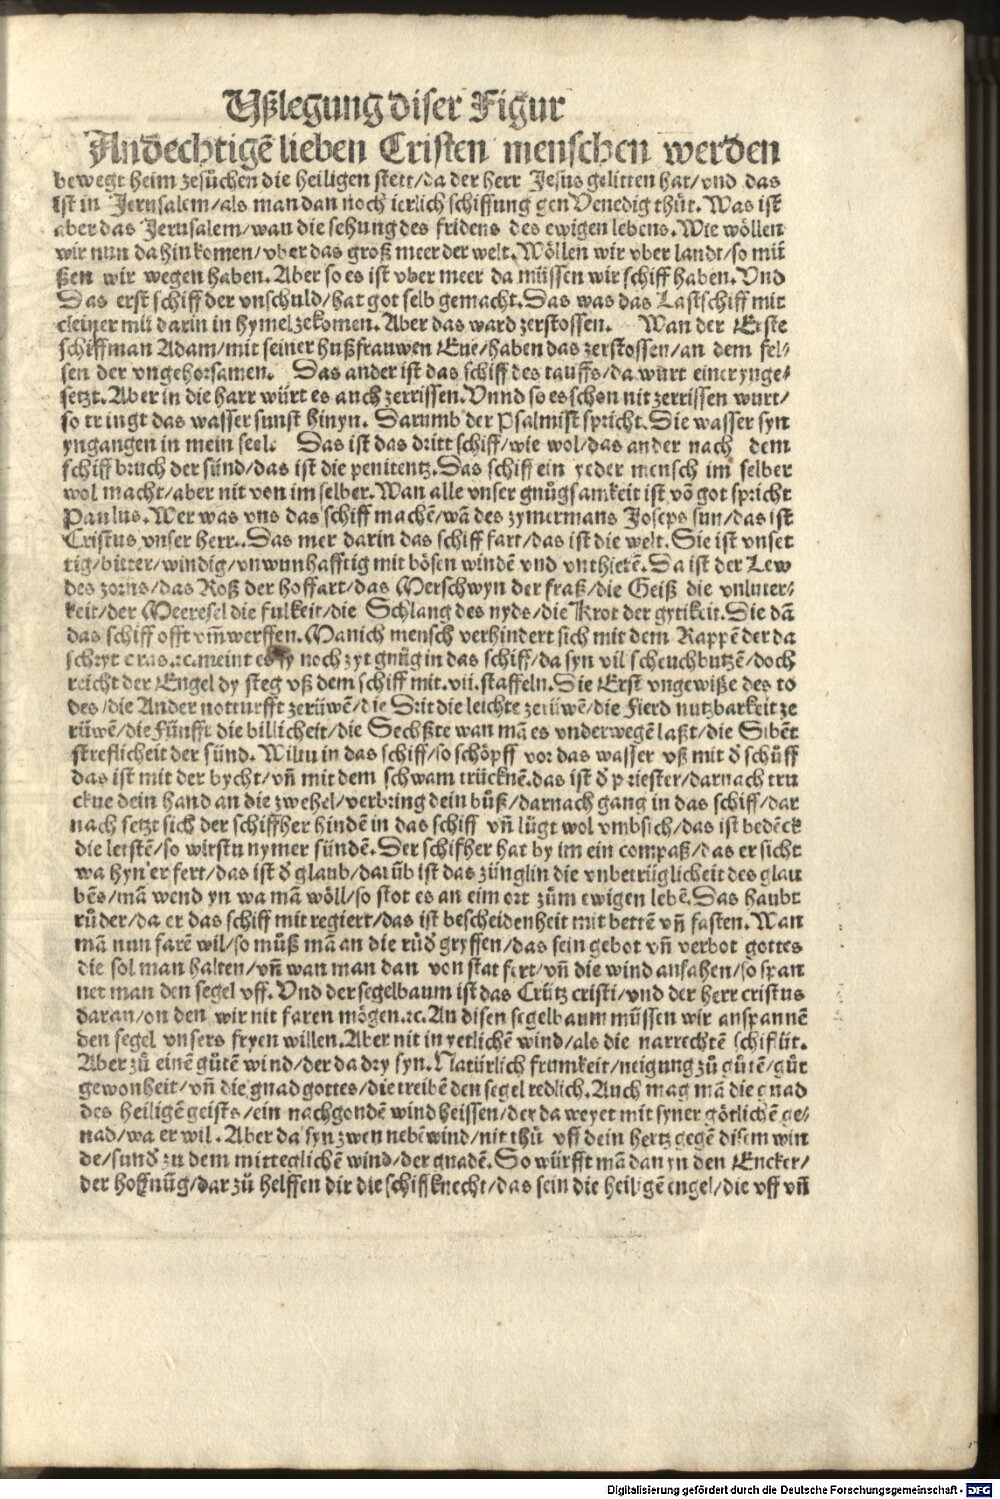 Vßlegung diser Figur
Andechtigē lieben Cristen menschen werden
bewegt heim zesůchen die heiligen stett/da der herr Jesus gelitten hat/vnd das
ist in Jerusalem/als man dan noch ierlich schiffung gen Venedig thůt. Was ist
aber das Jerusalem/wan die sehung des fridens des ewigen lebens. Wie wöllen
wir nun da hin komen/vber das groß meer der welt. Wöllen wir vber landt/so mü
ßen wir wegen haben. Aber so es ist vber meer da müssen wir schiff haben. Vnd
Das erst schiff der vnschuld/hat got selb gemacht. Das was das Lastschiff mit
cleiner mü darin in hymel zekomen. Aber das ward zerstossen. Wan der Erste
schiffman Adam/mit seiner hußfrauwen Eue/haben das zerstossen/an dem fel⸗
sen der vngehorsamen. Das ander ist das schiff des tauffs/da würt einer ynge⸗
setzt. Aber in die harr würt es auch zerrissen. Vnnd so es schon nit zerrissen wurt/
so tringt das wasser sunst hinyn. Darumb der Psalmist spricht. Die wasser syn
yngangen in mein seel. Das ist das dritt schiff/wie wol/das ander nach dem
schiffbruch der sünd/das ist die penitentz. Das schiff ein yeder mensch im selber
wol macht/aber nit von im selber. Wan alle vnser gnůgsamkeit ist vō got spricht
Paulus. Wer was vns das schiff machē/wā des zymermans Joseps sun/das ist
Cristus vnser herr. Das mer darin das schiff fart/das ist die welt. Sie ist vnset
tig/bitter/windig/vnwunhafftig mit bösen windē vnd vnthierē. Da ist der Lew
des zorns/das Roß der hoffart/das Merschwyn der fraß/die Geiß die vnluter⸗
keit/der Meeresel die fulkeit/die Schlang des nyds/die Krot der gytikeit. Die dā
das schiff offt vm̄werffen. Manich mensch verhindert sich mit dem Rappē der da
schryt cras.ꝛc. meint es sy noch zyt gnůg in das schiff/da syn vil scheuchbutzē/doch
reicht der Engel dy steg vß dem schiff mit .vii. staffeln. Die Erst vngewiße des to
des/die Ander notturfft zerüwē/die Drit die leichte zerüwē/die Fierd nutzbarkeit ze
rüwē/die Fünfft die billicheit/die Sechßte wan mā es vnderwegē laßt/die Sibēt
streflicheit der sünd. Wiltu in das schiff/so schöpff vor das wasser vß mit d̄ schüff
das ist mit der bycht/vn̄ mit dem schwam trücknē. das ist d̄ priester/darnach tru
ckne dein hand an die zwehel/verbring dein bůß/darnach gang in das schiff/dar
nach setzt sich der schiffher hindē in das schiff vn̄ lůgt wol vmbsich/das ist bedēck
die letstē/so wirstu nymer sündē. Der schifher hat by im ein compaß/das er sicht
wa hyn er fert/das ist d̄ glaub/darüb ist das zünglin die vnbetrüglicheit des glau
bēs/mā wend yn wa mā wöll/so stot es an eim ort zům ewigen lebē. Das haubt
růder/da er das schiff mit regiert/das ist bescheidenheit mit bettē vn̄ fasten. Wan
mā nun farē wil/so můß mā an die růd̄ gryffen/das sein gebot vn̄ verbot gottes
die sol man halten/vn̄ wan man dan von stat fert/vn̄ die wind anfahen/so span
net man den segel vff. Vnd der segelbaum ist das Crütz cristi/vnd der herr cristus
daran/on den wir nit faren mögen.ꝛc. An disen segelbaum müssen wir anspannē
den segel vnsers fryen willen. Aber nit in yetlichē wind/als die narrechtē schiflüt.
Aber zů einē gůtē wind/der da dry syn. Natürlich frumkeit/neigung zů gůtē/gůt
gewonheit/vn̄ die gnad gottes/die treibē den segel redlich. Auch mag mā die gnad
des heiligē geists/ein nachgondē wind heissen/der da weyet mit syner götlichē ge⸗
nad/wa er wil. Aber da syn zwen nebē wind/nit thů vff dein hertz gegē disem win
de/sund̄ zu dem mitteglichē wind/der gnadē. So würfft mā dan yn den Encker/
der hoffnūg/dar zů helffen dir die schiffknecht/das sein die heiligē engel/die vff vn̄
Digitalisierung gefördert durch die Deutsche Forschungsgemeinschaft - DFG